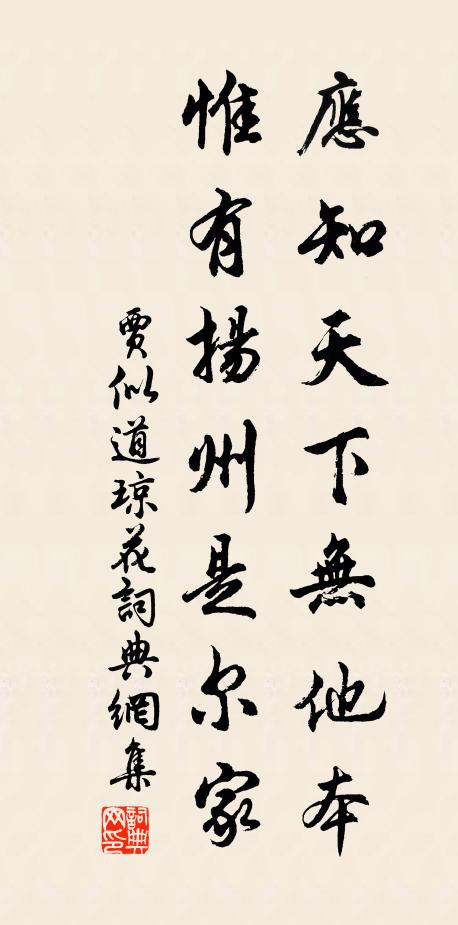 應知天下無他本
惟有揚州是尔家
賈似道琼花詞典網集
詞典網印